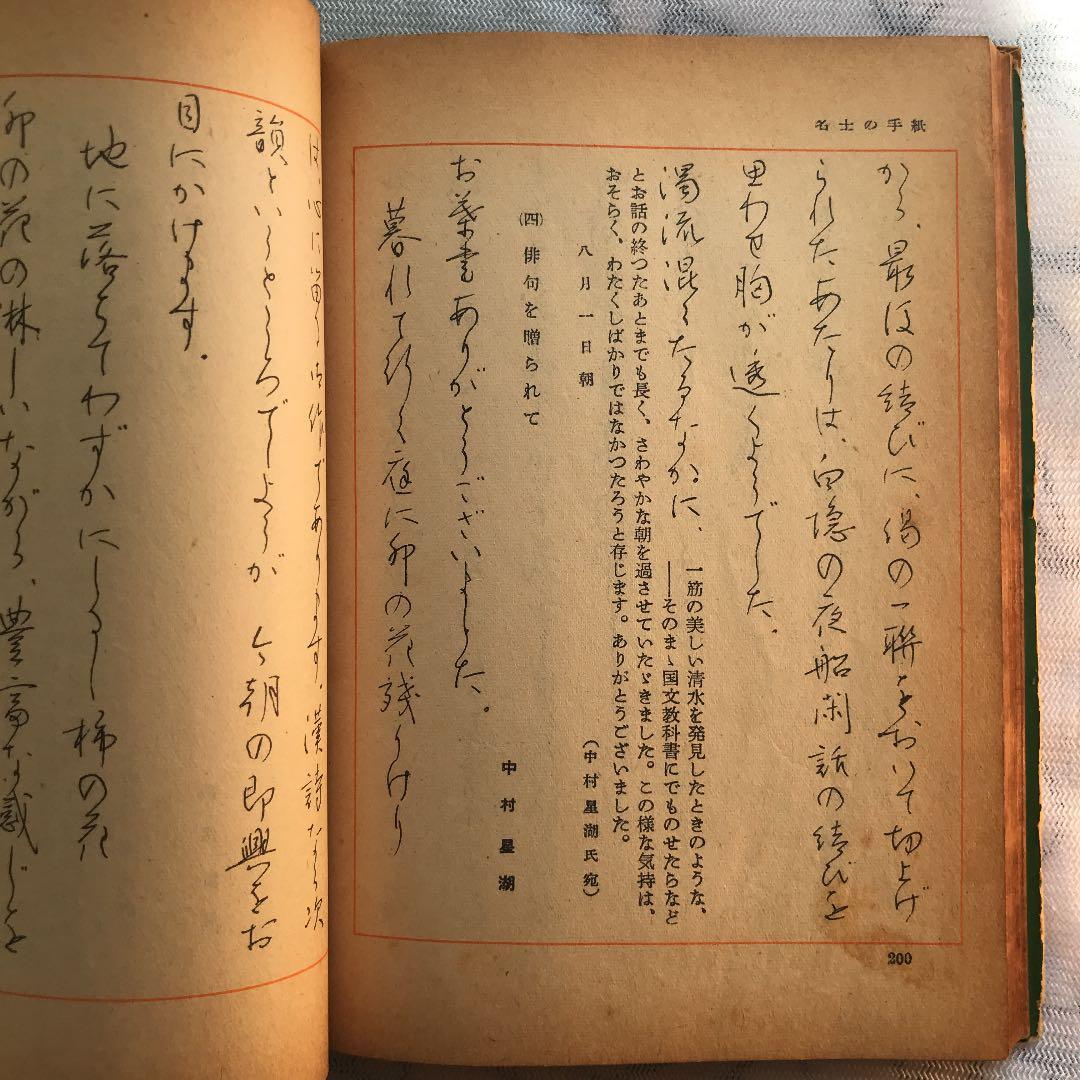 名士の手紙
から、最後の結びに、偈の一聯をおいて切上げ
られたあたりは、白隠の夜船閑話の結びを
思わせ胸が透くようでした。
濁流混々たるなかに、
一筋の美しい清水を発見したときのような、
――そのまゝ国文教科書にでものせたらなど
とお話の終つたあとまでも長く、さわやかな朝を過させていたゞきました。この様な気持は、
おそらく、わたくしばかりではなかつたろうと存じます。ありがとうございました。
八月一日朝
(中村星湖氏宛)
(四) 俳句を贈られて
中村星湖
お葉書ありがとうございました。
暮れて行く庭に卯の花残りけり
200
は心に留る御作であります。漢詩なら次
韻というところでしようが 今朝の即興をお
目にかけます。
地に落ちてわずかにしるし柿の花
卯の花の淋しいながら、豊富な感じと